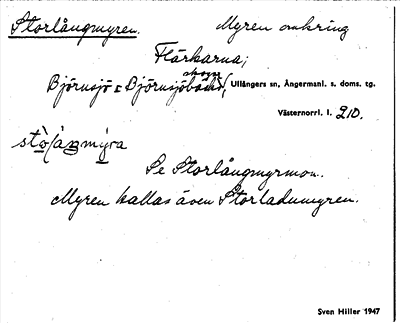 Storlångmyren. Myren omkring
Flärkarna;
Björnsjö Björnsjö
skogn
Ullångers sn, Ångermanl. s. doms. tg.
Västernorrl. l. 210.
Se Storlångmyrmon.
Myren kallas även Storladumyren.
Sven Hiller 1947